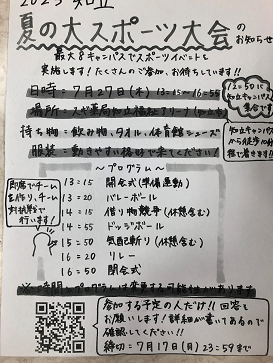 2023 知立
夏の大スポーツ大会のお知らせ
最大8キャンパスでスポーツイベントを
実施します！たくさんのご参加、お待ちしています!!
日時：7月27日(木) 13=15〜16=50
場所：スギ薬局知立福祉アリーナ
12=50に
知立キャンパス
集合です
持ち物：飲み物、タオル、体育館シューズ
服装：動きやすい格好で来てください！
知立キャンパス
から徒歩10分
程で着きます!!
〜プログラム〜
即席でチーム
を作り、チーム
対抗戦で
行います！
13=15 開会式(準備運動)
13=20 バレーボール
14=15 借り物競争(休憩含む)
14=55 ドッジボール
15=50 気配斬り(休憩含む)
16=20 リレー
16=50 閉会式
プログラムは変更する可能性があります
参加する予定の人だけ!!回答を
お願いします！詳細が書いてあるので
確認してください!!
締切：7月17日(月)23=59まで